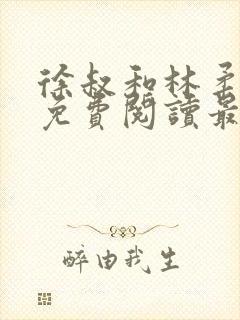 徐叔和林柔
免費閱讀最
醉由我生